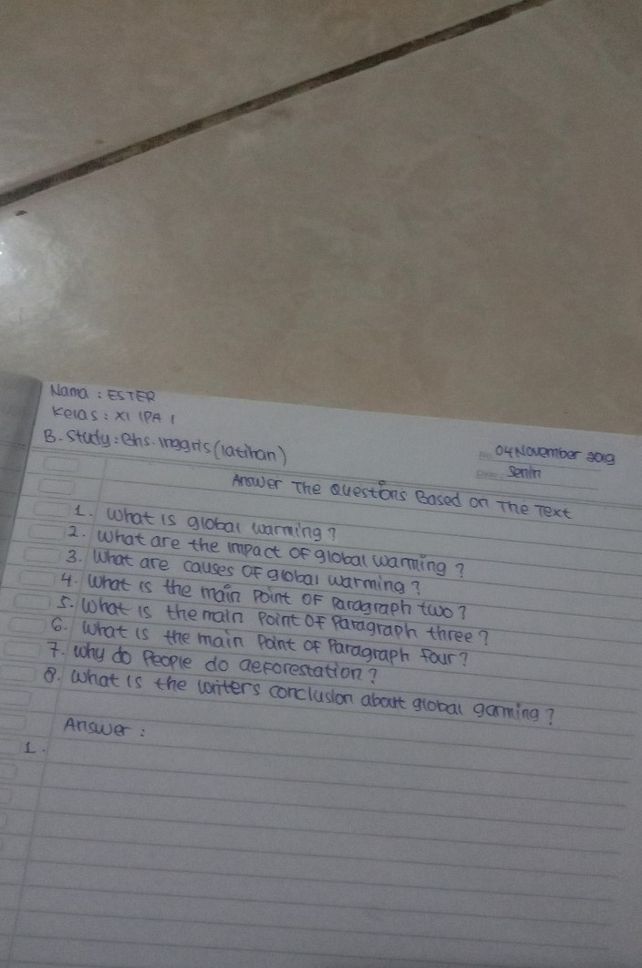 Nama : ESTER
Kelas : XI IPA 1
B. Study : Bhs. Inggris (latihan)
04 November 2019
Senin
Answer The Questions Based on The Text
1. What is global warming ?
2. What are the impact of global warming ?
3. What are causes of global warming ?
4. What is the main point of paragraph two ?
5. What is the main point of Paragraph three ?
6. What is the main point of Paragraph four ?
7. Why do people do deforestation ?
8. What is the writers conclusion about global garming ?
Answer :
1.